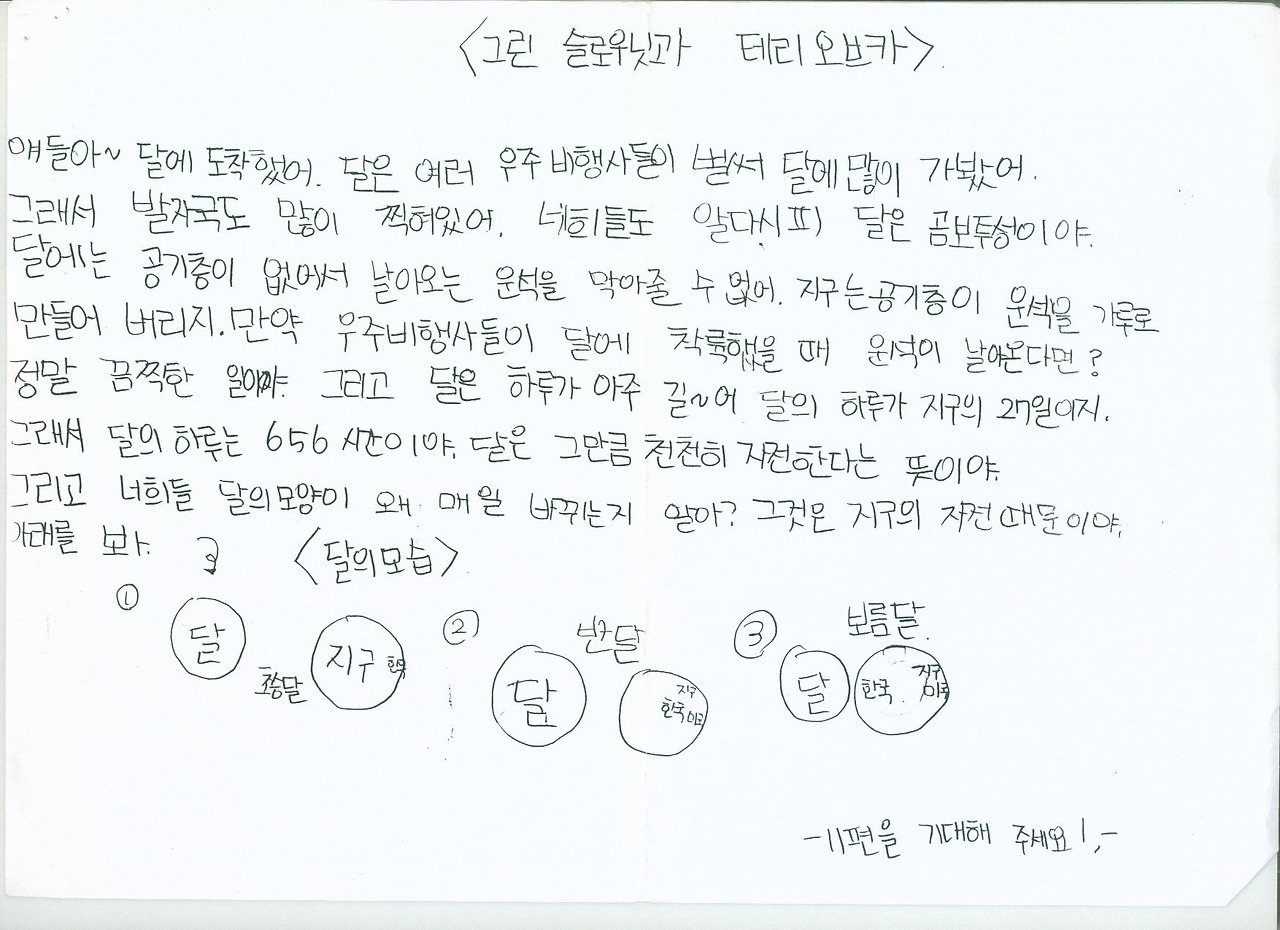 <그린 슬로우닛과 테리오브카>.
얘들아~ 달에 도착했어. 달은 여러 우주비행사들이 벌써 달에 많이 가봤어.
그래서 발자국도 많이 찍혀있어. 네희들도 알다시피 달은 곰보투성이야.
달에는 공기층이 없어서 날아오는 운석을 막아줄 수 없어. 지구는 공기층이 운석을 가루로
만들어 버리지. 만약 우주비행사들이 달에 착륙했을 때 운석이 날아온다면?
정말 끔찍한 일이야. 그리고 달은 하루가 아주 길~어 달의 하루가 지구의 27일이지.
그래서 달의 하루는 656시간이야. 달은 그만큼 천천히 자전한다는 뜻이야.
그리고 너희들 달의 모양이 왜 매일 바뀌는지 알아? 그것은 지구의 자전 때문이야.
아래를 봐.
<달의 모습>
① 달 초승달 지구 한국
② 반달 달 지구 한국 미국
③ 보름달. 달 한국 지구 미국
-11편을 기대해 주세요!.-